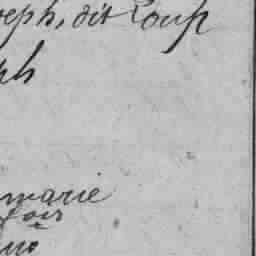 seph, dit Loup
ph
marie
fois